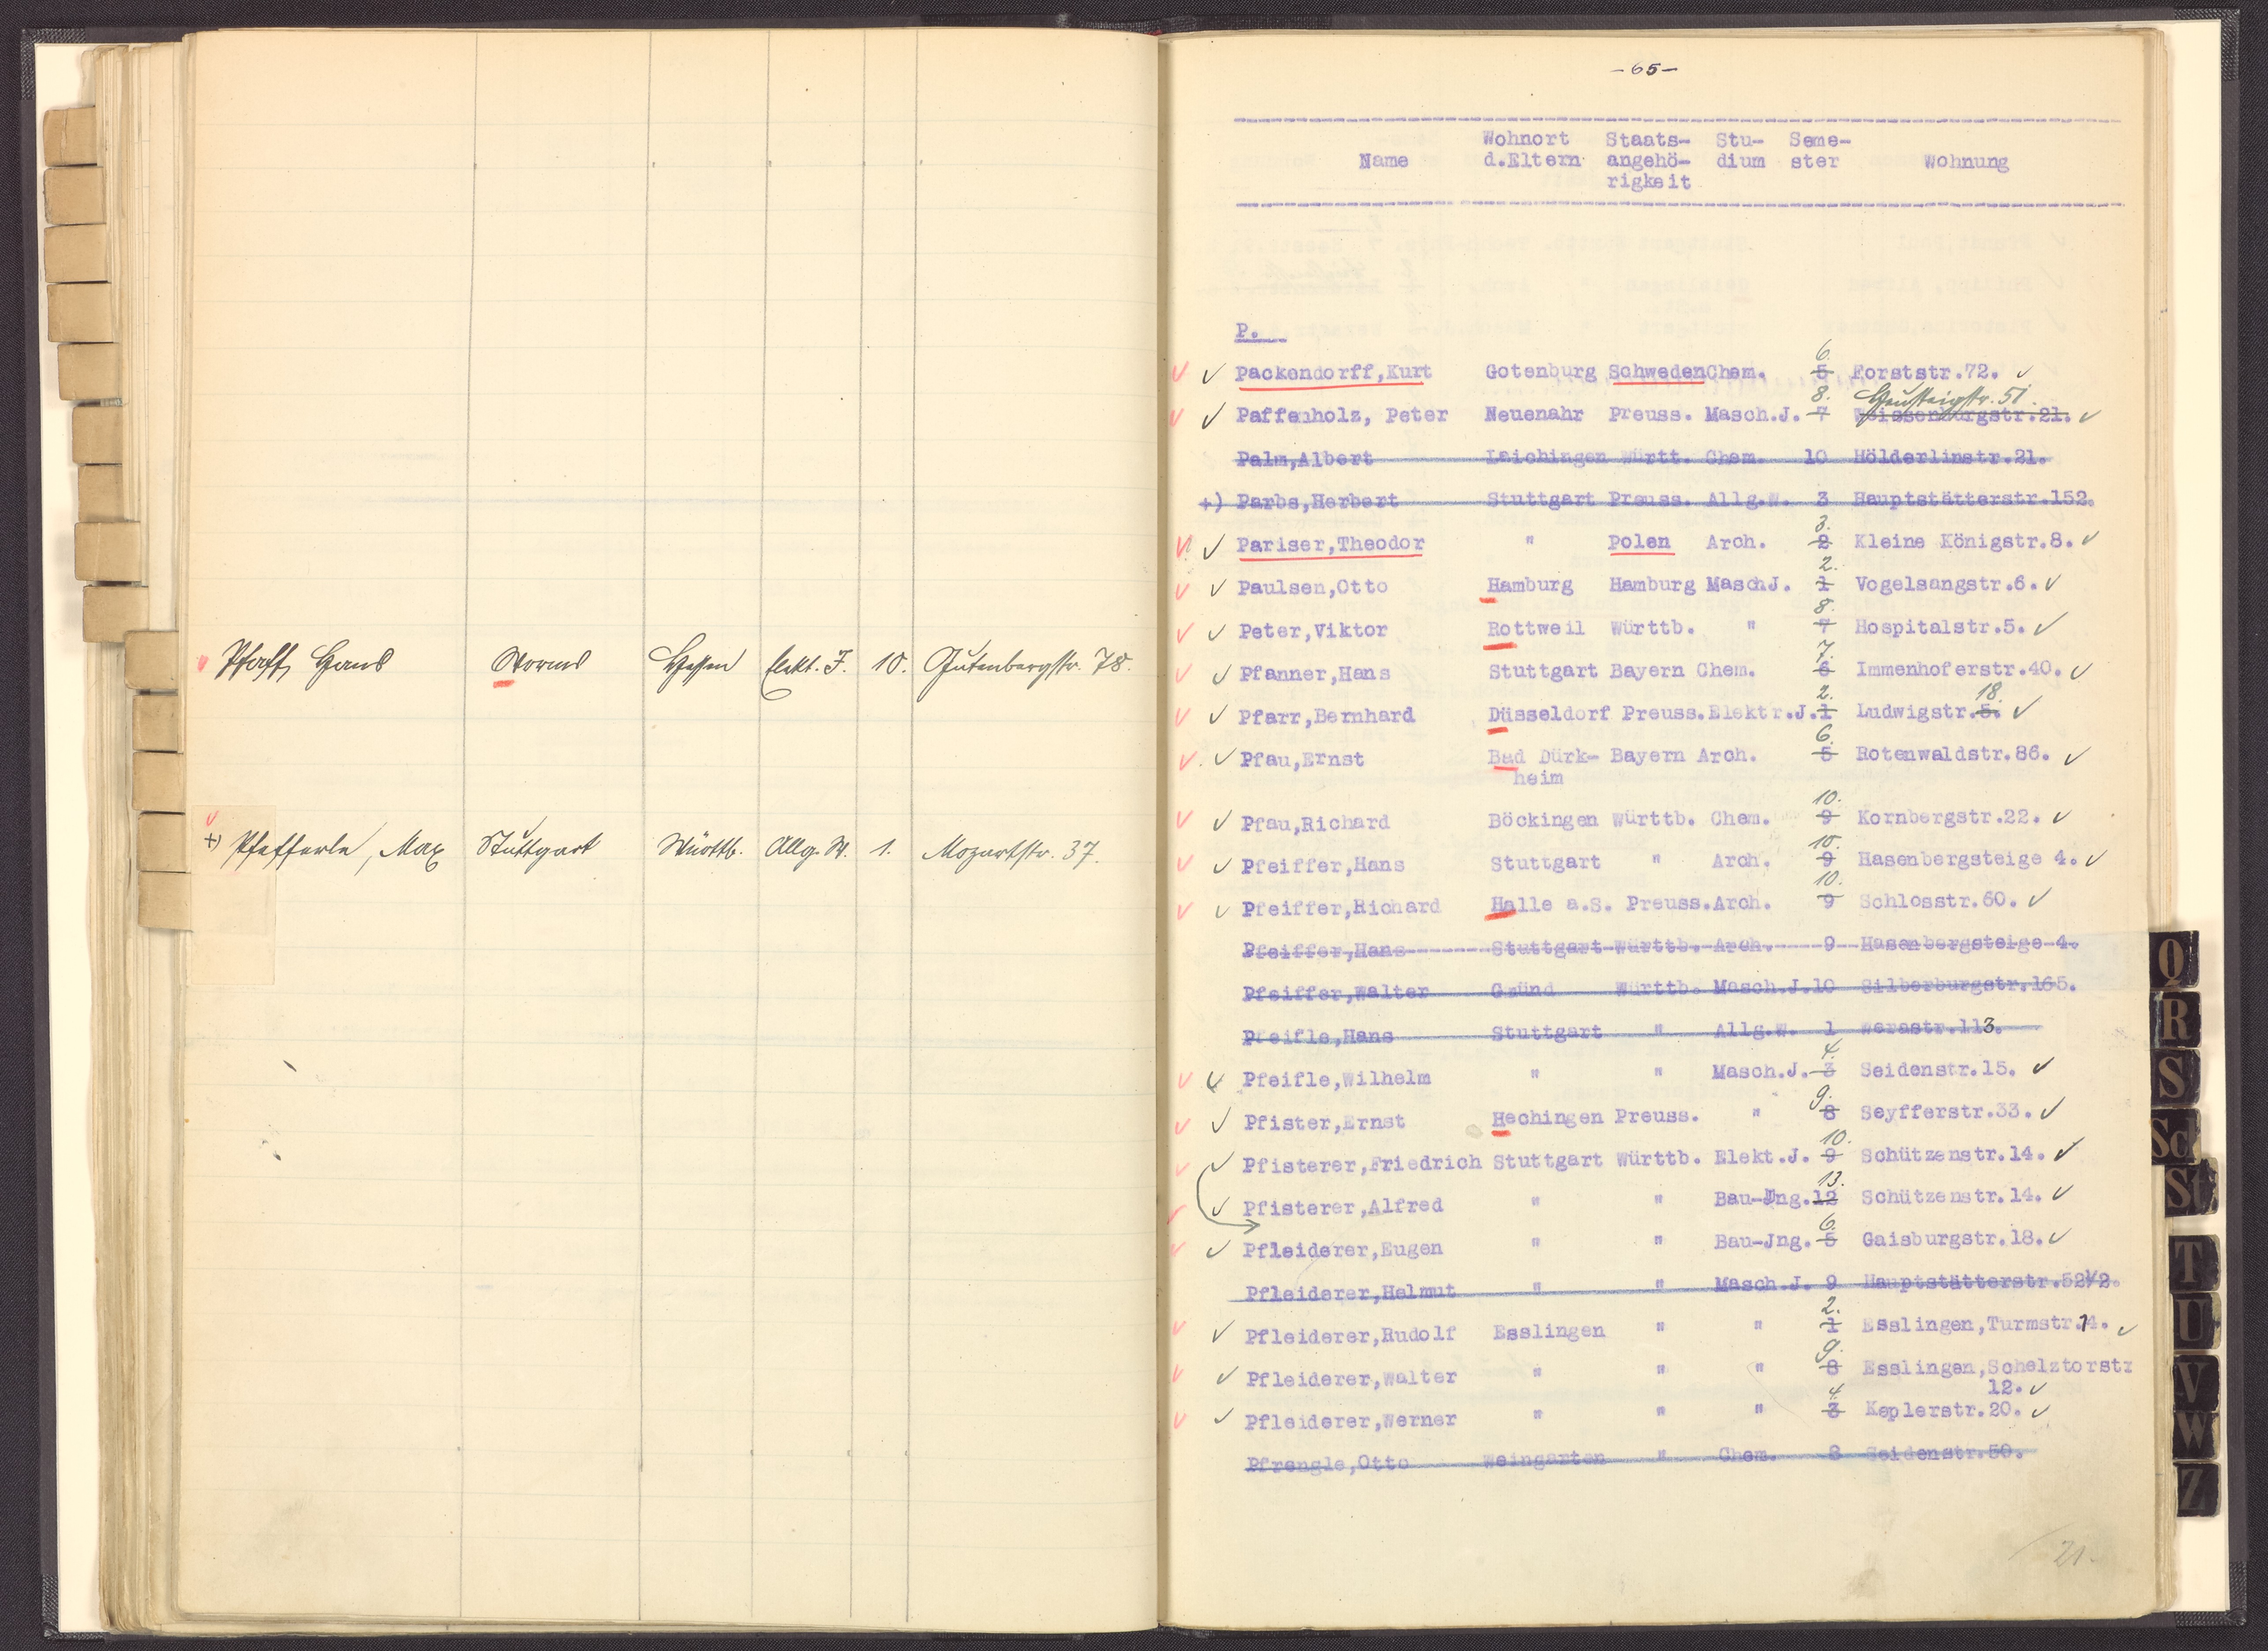 Pfaff, Hans Worms Hessen Elekt. J. 10. Gutenbergstr. 78.
+) Pfefferle, Max Stuttgart Württb. Allg. W. 1. Mozartstr. 37.
-65-
Wohnort Staats- Stu- Seme-
Name d.Eltern angehö- dium ster Wohnung
rigkeit
P.
6.
Packendorff,Kurt Gotenburg Schweden Chem. 5 Forststr.72.
8. Heusteigstr. 51.
Paffenholz, Peter Neuenahr Preuss. Masch.J. 7 Weissenburgstr.21.
Palm,Albert Laichingen Württ. Chem. 10 Hölderlinstr.21.
+) Parbs,Herbert Stuttgart Preuss. Allg.W. 3 Hauptstätterstr.152.
3.
Pariser,Theodor " Polen Arch. 2 Kleine Königstr.8.
2.
Paulsen,Otto Hamburg Hamburg Masch.J. 1 Vogelsangstr.6.
8.
Peter,Viktor Rottweil Württb. " 7 Hospitalstr.5.
7.
Pfanner,Hans Stuttgart Bayern Chem. 6 Immenhoferstr.40.
2. 18.
Pfarr,Bernhard Düsseldorf Preuss.Elektr.J.1 Ludwigstr.5.
6.
Pfau,Ernst Bad Dürk- Bayern Arch. 5 Rotenwaldstr.86.
heim
10.
Pfau,Richard Böckingen Württb. Chem. 9 Kornbergstr.22.
10.
Pfeiffer,Hans Stuttgart " Arch. 9 Hasenbergsteige 4.
10.
Pfeiffer,Richard Halle a.S. Preuss.Arch. 9 Schlosstr.60.
Pfeiffer,Hans Stuttgart Württb. Arch. 9 Hasenbergsteige 4.
Pfeiffer,Walter Gmünd Württb. Masch.J.10 Silberburgstr.165.
Pfeifle,Hans Stuttgart " Allg.W. 1 Werastr.113.
4.
Pfeifle,Wilhelm " " Masch.J. 3 Seidenstr.15.
9.
Pfister,Ernst Hechingen Preuss. " 8 Seyfferstr.33.
10.
Pfisterer,Friedrich Stuttgart Württb. Elekt.J. 9 Schützenstr.14.
13.
Pfisterer,Alfred " " Bau-Jng.12 Schützenstr.14.
6.
Pfleiderer,Eugen " " Bau-Jng. 5 Gaisburgstr.18.
Pfleiderer,Helmut " " Masch.J. 9 Hauptstätterstr.52½.
2.
Pfleiderer,Rudolf Esslingen " " 1 Esslingen,Turmstr.14.
9.
Pfleiderer,Walter " " " 8 Esslingen,Schelztorstr
4. 12.
Pfleiderer,Werner " " " 3 Keplerstr.20.
Pfrengle,Otto Weingarten " Chem. 8 Seidenstr.50.
21.
Q
R
S
Sch
St
T
U
V
W
Z